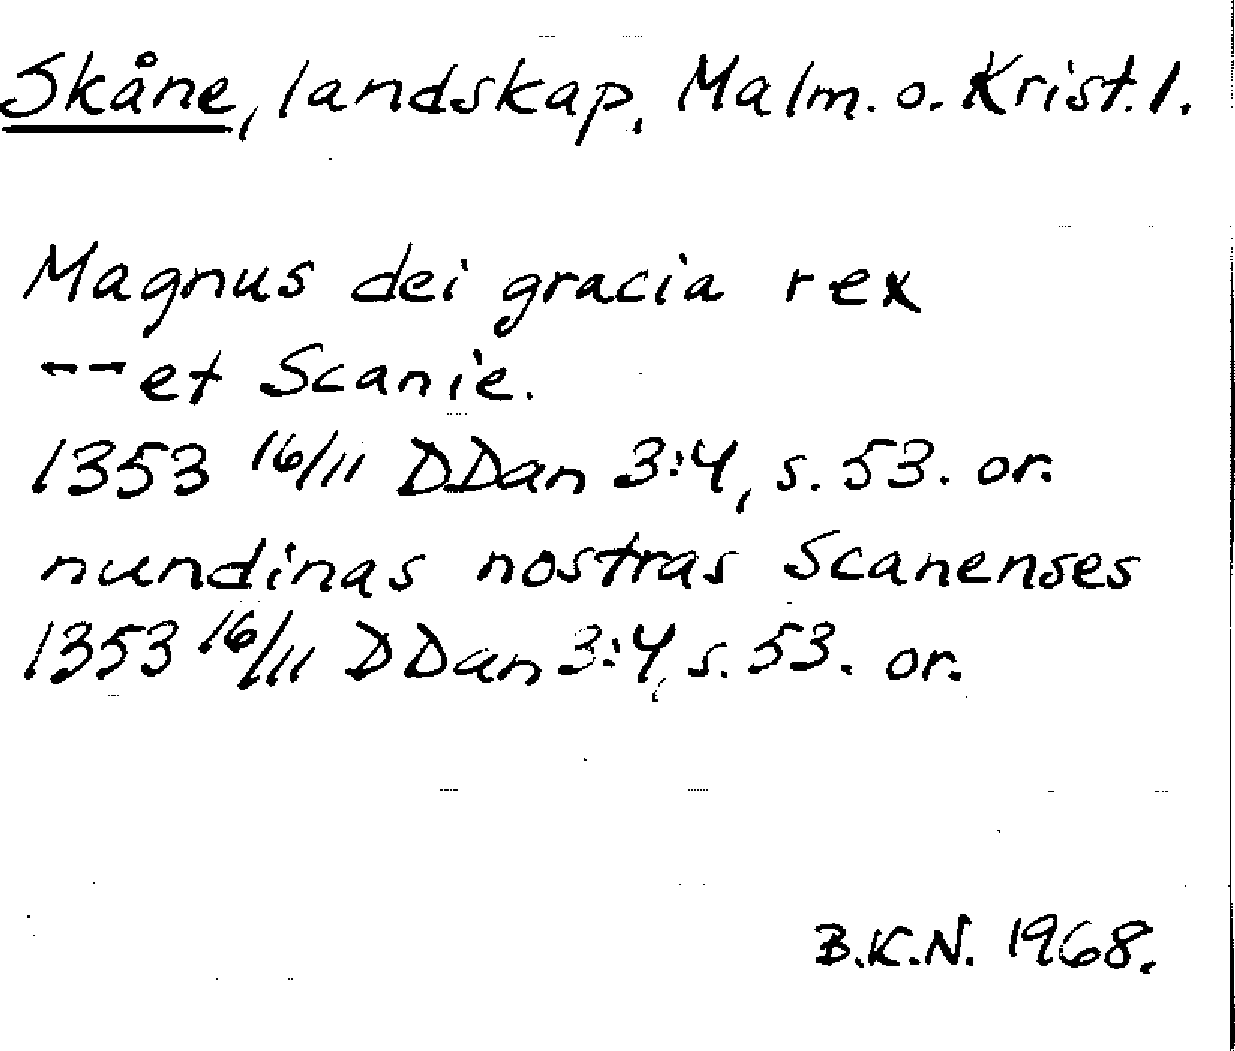 Skåne, landskap, Malm. o. Krist. l.
Magnus dei gracia rex
-- et Scanie.
1353 16/11 DDan 3:4, s. 53. or.
nundinas nostras Scanenses
1353 16/11 DDan 3:4, s. 53. or.
B.K.N. 1968.